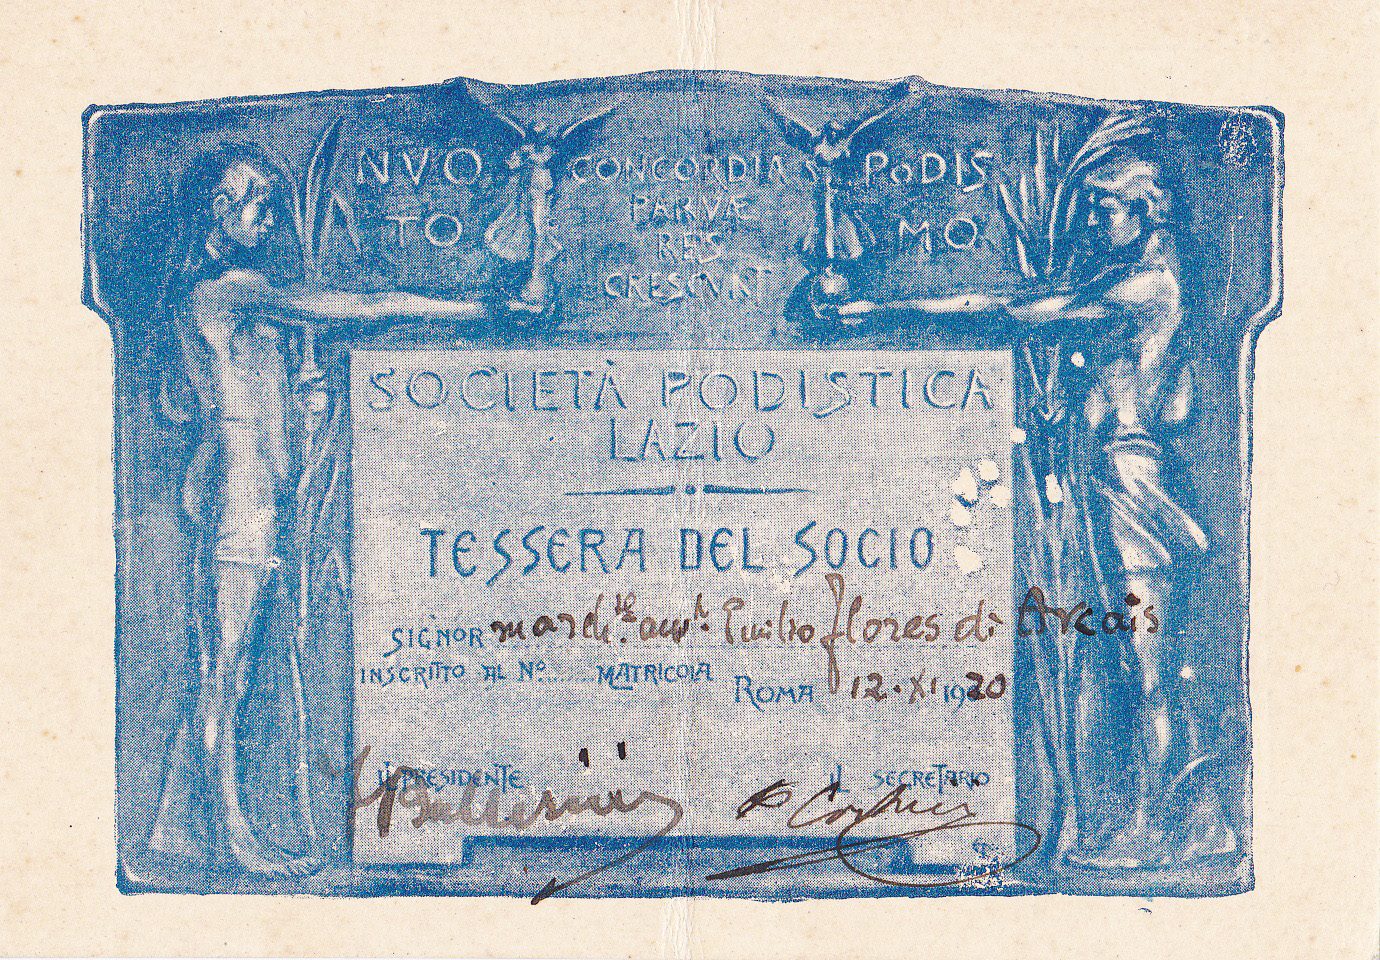 NVO
TO
CONCORDIA
PARVÆ
RES
CRESCVNT
PODIS
MO
SOCIETÀ PODISTICA
LAZIO
TESSERA DEL SOCIO
SIGNOR Emilio Flores di Arcais
INSCRITTO AL Nº...... MATRICOLA
ROMA 12·XI 1920
IL PRESIDENTE
IL SECRETARIO